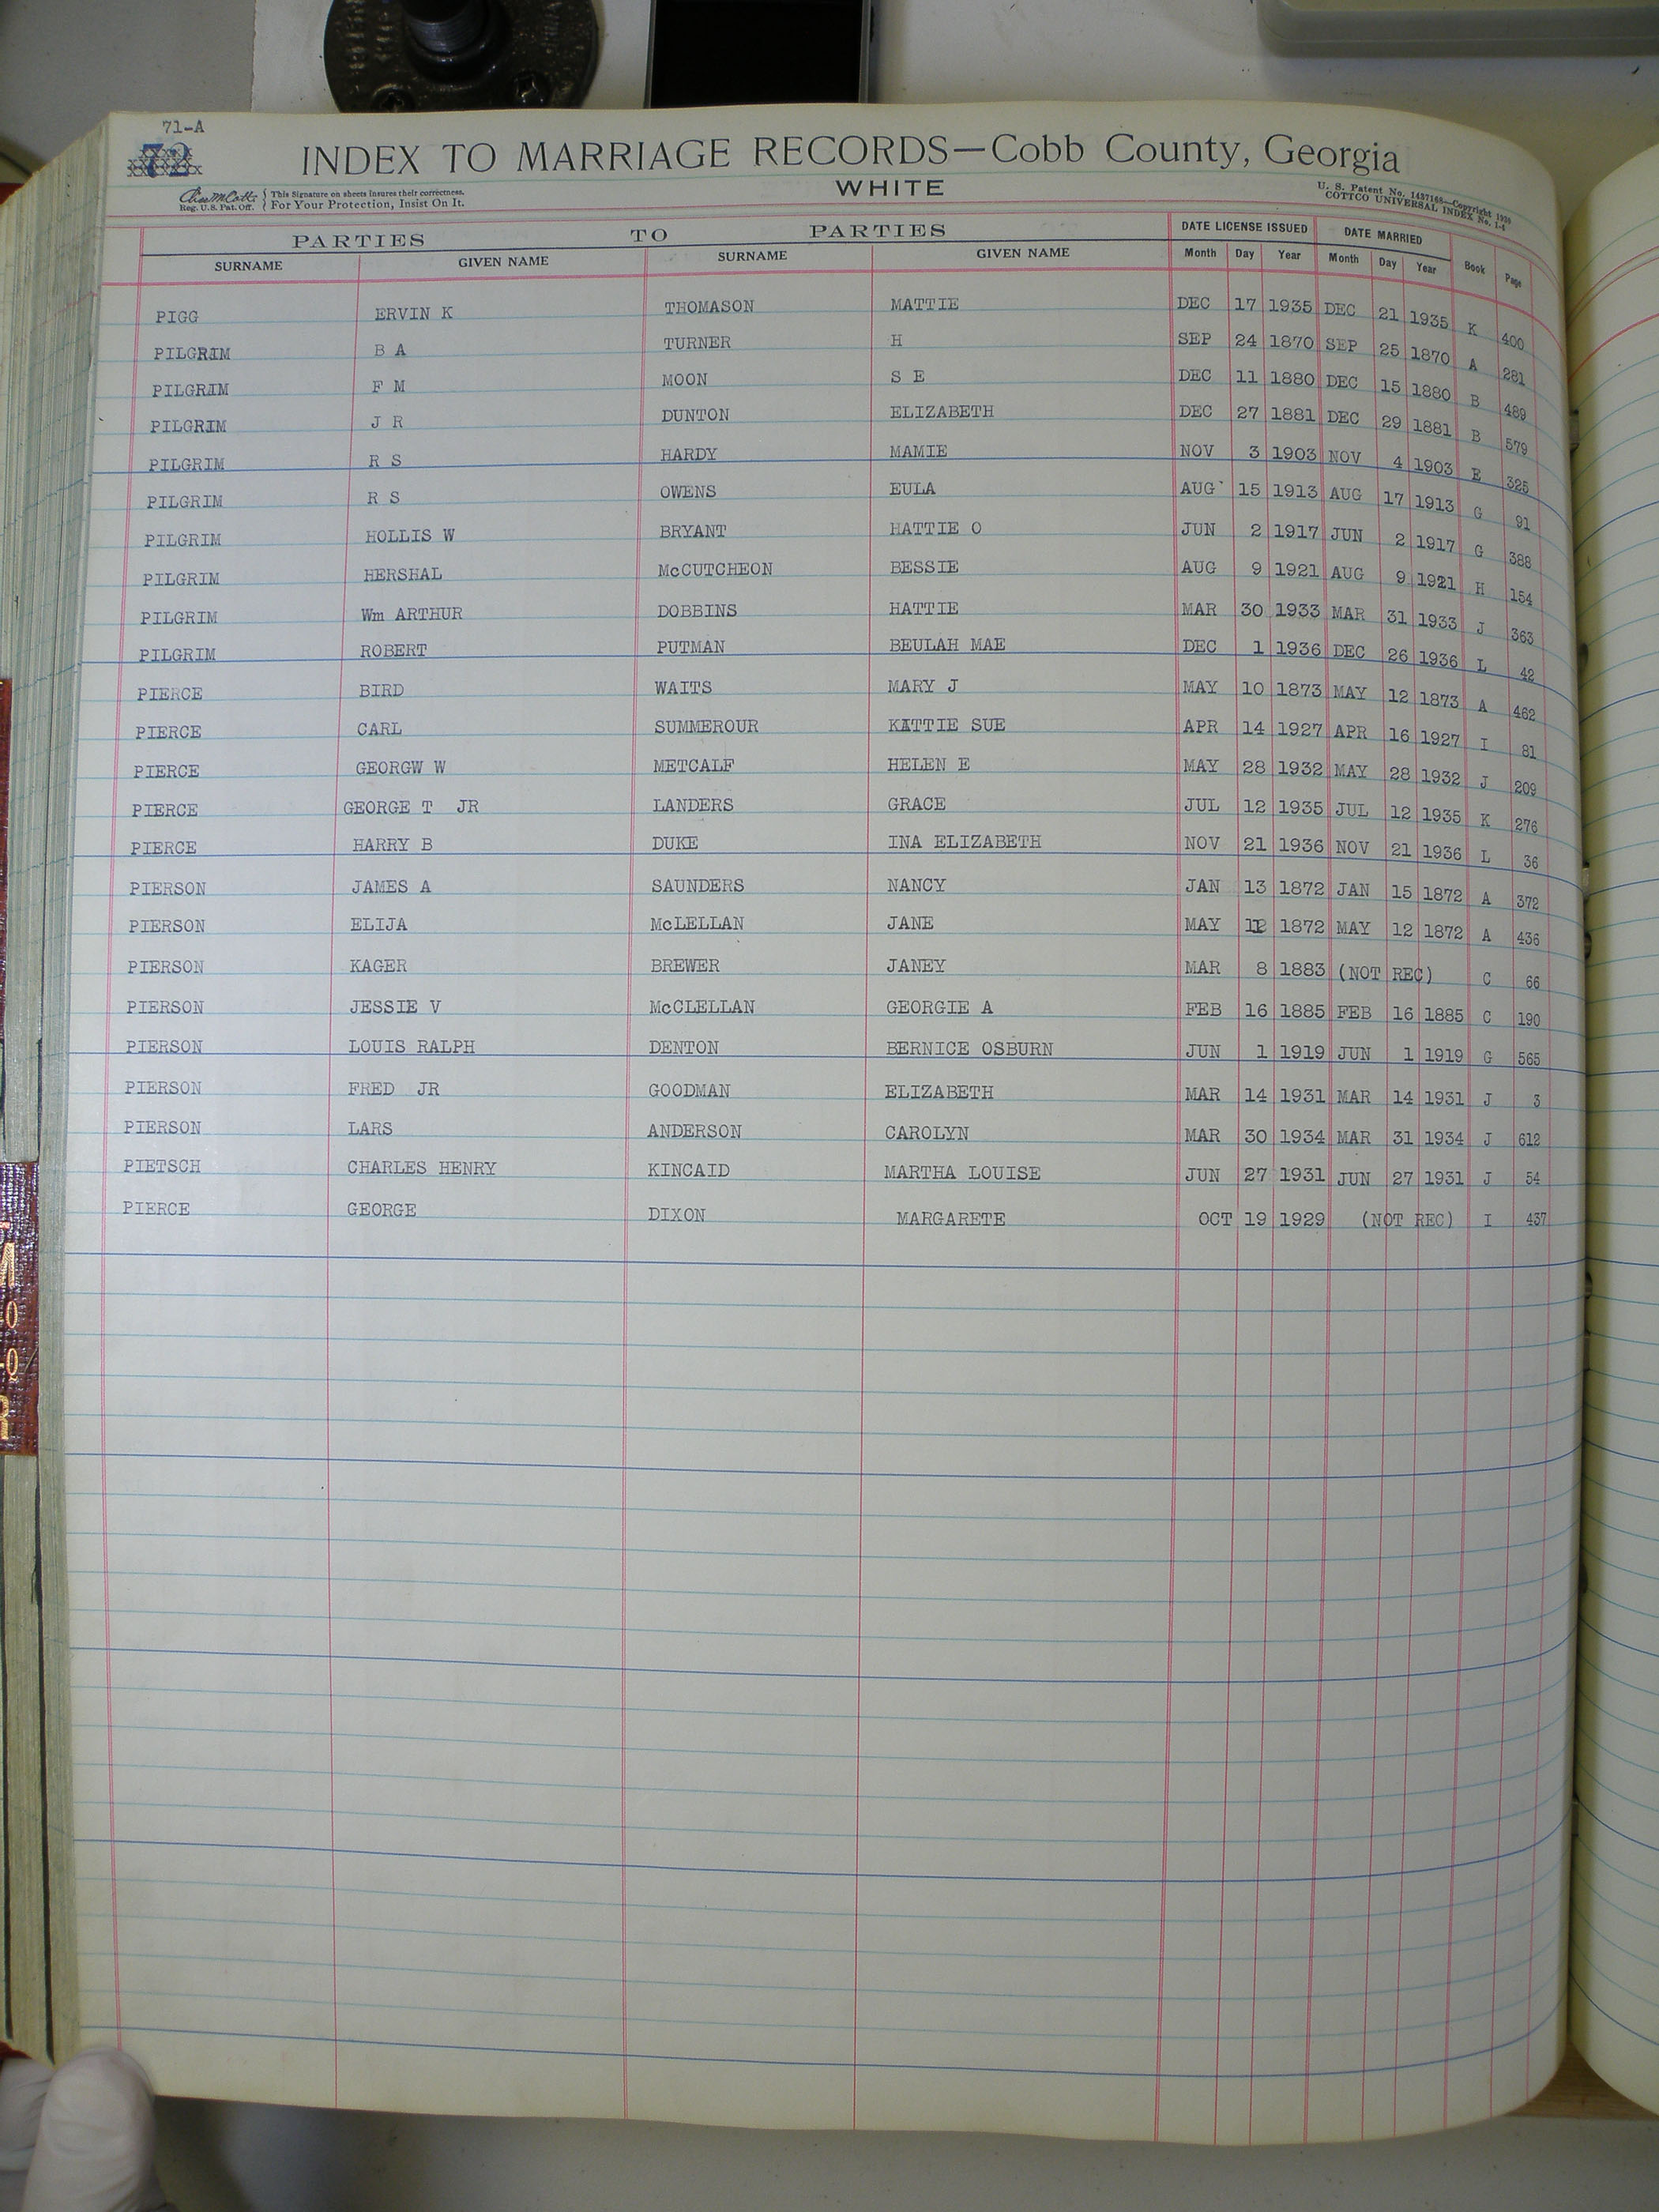 71-A
72
INDEX TO MARRIAGE RECORDS—Cobb County, Georgia
WHITE
Reg. U.S. Pat. Off. This Signature on sheets insures their correctness. For Your Protection, Insist On It.
U. S. Patent No. 1437168—Copyright 1930
COTTCO UNIVERSAL INDEX No. 1-4
PARTIES TO PARTIES DATE LICENSE ISSUED DATE MARRIED
SURNAME GIVEN NAME SURNAME GIVEN NAME Month Day Year Month Day Year Book Page
PIGG ERVIN K THOMASON MATTIE DEC 17 1935 DEC 21 1935 K 400
PILGRIM B A TURNER H SEP 24 1870 SEP 25 1870 A 281
PILGRIM F M MOON S E DEC 11 1880 DEC 15 1880 B 489
PILGRIM J R DUNTON ELIZABETH DEC 27 1881 DEC 29 1881 B 579
PILGRIM R S HARDY MAMIE NOV 3 1903 NOV 4 1903 E 325
PILGRIM R S OWENS EULA AUG 15 1913 AUG 17 1913 G 91
PILGRIM HOLLIS W BRYANT HATTIE O JUN 2 1917 JUN 2 1917 G 388
PILGRIM HERSHAL McCUTCHEON BESSIE AUG 9 1921 AUG 9 1921 H 154
PILGRIM Wm ARTHUR DOBBINS HATTIE MAR 30 1933 MAR 31 1933 J 363
PILGRIM ROBERT PUTMAN BEULAH MAE DEC 1 1936 DEC 26 1936 L 42
PIERCE BIRD WAITS MARY J MAY 10 1873 MAY 12 1873 A 462
PIERCE CARL SUMMEROUR KATTIE SUE APR 14 1927 APR 16 1927 I 81
PIERCE GEORGW W METCALF HELEN E MAY 28 1932 MAY 28 1932 J 209
PIERCE GEORGE T JR LANDERS GRACE JUL 12 1935 JUL 12 1935 K 276
PIERCE HARRY B DUKE INA ELIZABETH NOV 21 1936 NOV 21 1936 L 36
PIERSON JAMES A SAUNDERS NANCY JAN 13 1872 JAN 15 1872 A 372
PIERSON ELIJA McLELLAN JANE MAY 1872 MAY 12 1872 A 436
PIERSON KAGER BREWER JANEY MAR 8 1883 (NOT REC) C 66
PIERSON JESSIE V McCLELLAN GEORGIE A FEB 16 1885 FEB 16 1885 C 190
PIERSON LOUIS RALPH DENTON BERNICE OSBURN JUN 1 1919 JUN 1 1919 G 565
PIERSON FRED JR GOODMAN ELIZABETH MAR 14 1931 MAR 14 1931 J 3
PIERSON LARS ANDERSON CAROLYN MAR 30 1934 MAR 31 1934 J 612
PIETSCH CHARLES HENRY KINCAID MARTHA LOUISE JUN 27 1931 JUN 27 1931 J 54
PIERCE GEORGE DIXON MARGARETE OCT 19 1929 (NOT REC) I 437